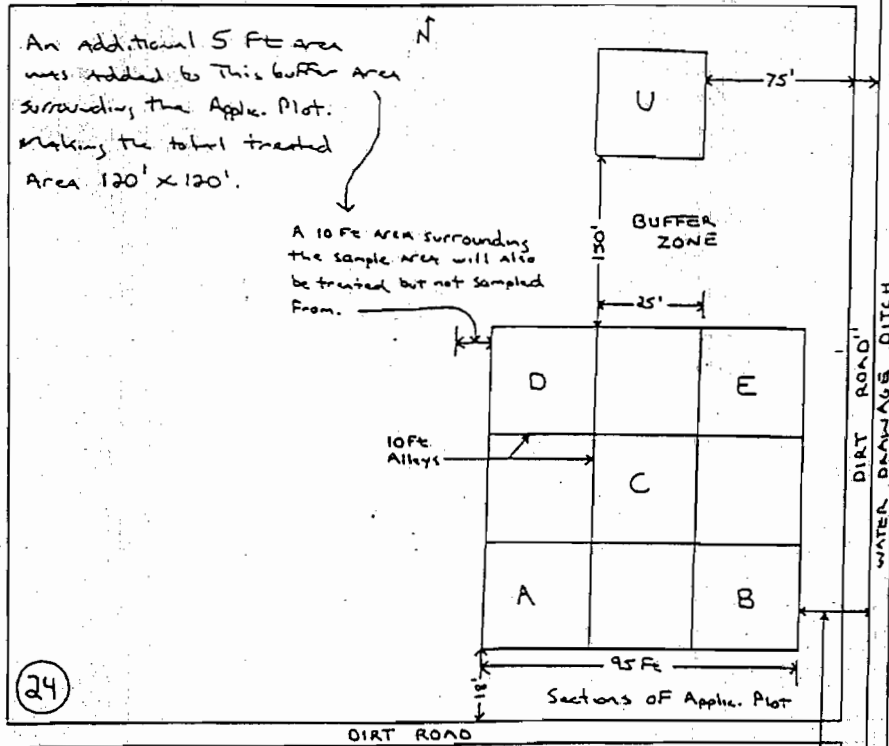 An Additional 5 Ft area
was Added to This buffer Area
surrounding the Applic. Plot.
Making the total treated
Area 120' x 120'.
N
U
75'
A 10 Ft Area surrounding
the sample area will also
be treated but not sampled
From.
BUFFER
ZONE
150'
25'
D
E
10 Ft.
Alleys
C
A
B
95 Ft
18'
Sections of Applic. Plot
24
DIRT ROAD
DIRT ROAD
WATER DRAWAGE DITCH